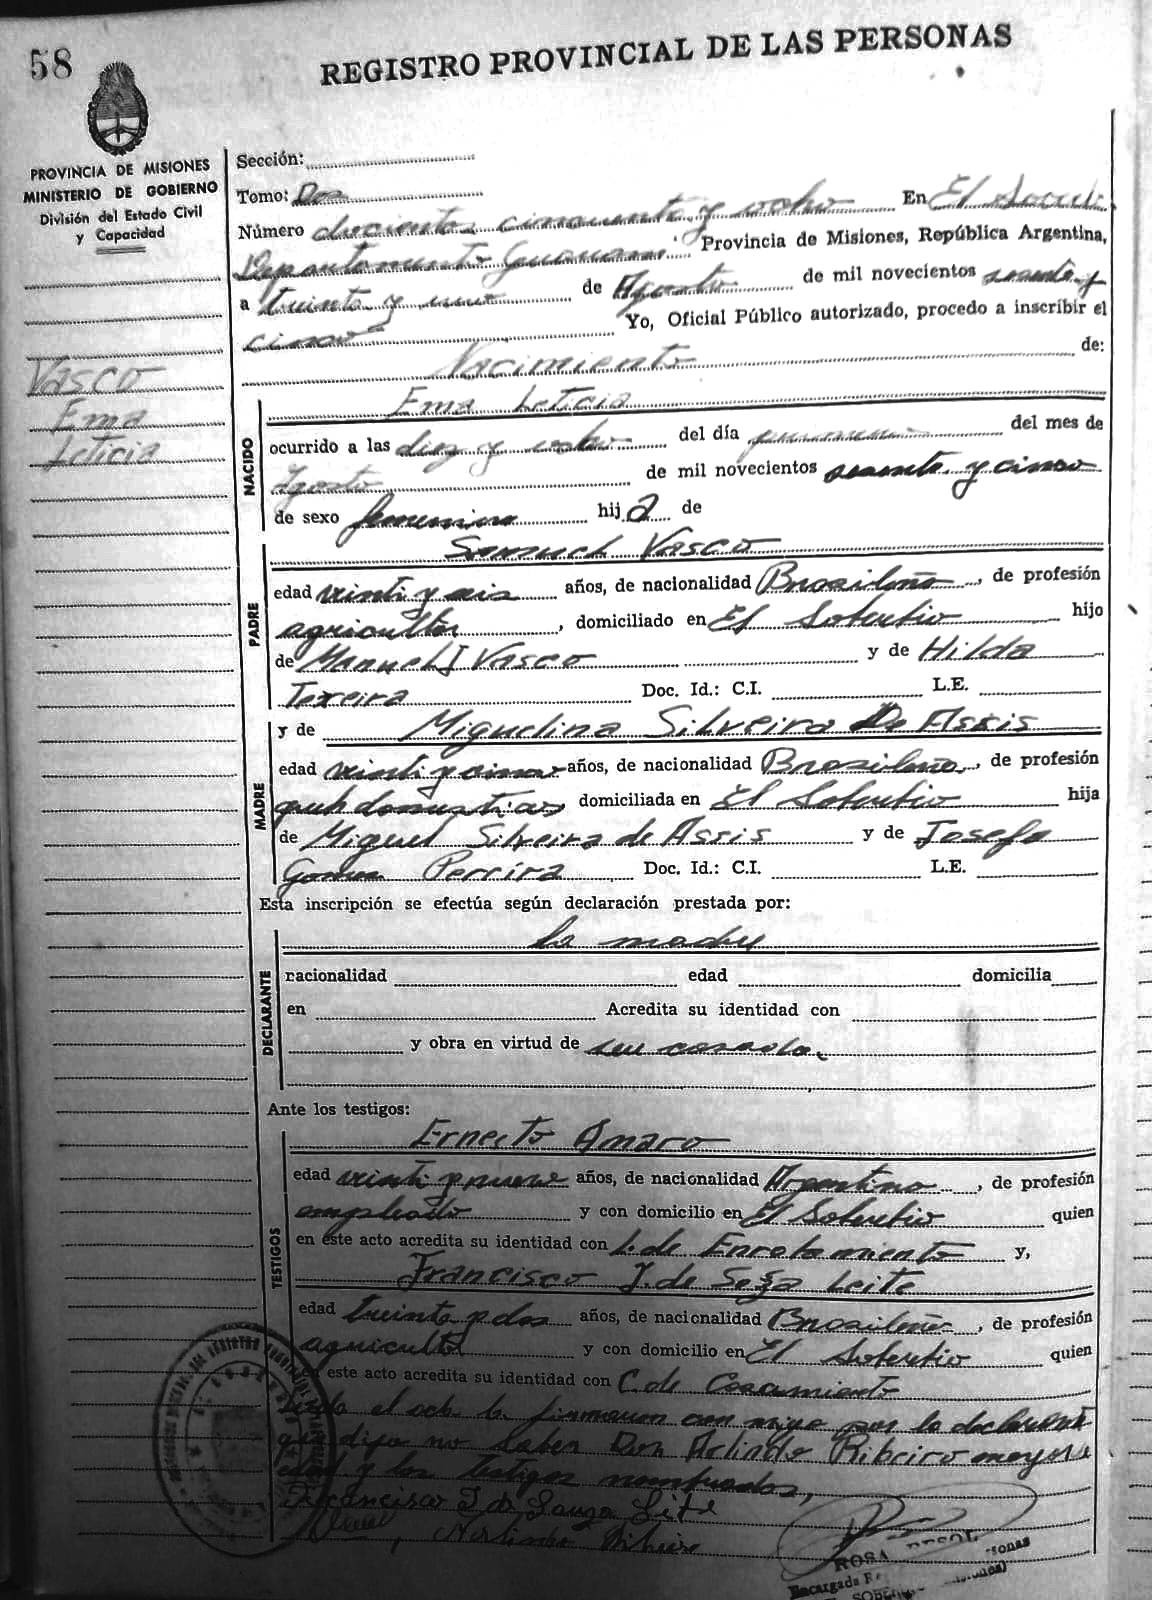 58
REGISTRO PROVINCIAL DE LAS PERSONAS
PROVINCIA DE MISIONES
MINISTERIO DE GOBIERNO
División del Estado Civil
y Capacidad
Vasco
Ema
Leticia
Sección:
Tomo: Dos
Número docientos cincuenta y ocho En El
Departamento Guaraní Provincia de Misiones, República Argentina,
a treinta y uno de Agosto de mil novecientos sesenta y
cinco Yo, Oficial Público autorizado, procedo a inscribir el
Nacimiento de:
NACIDO
Ema Leticia
ocurrido a las diez y ocho del día primero del mes de
Agosto de mil novecientos sesenta y cinco
de sexo femenino hija de
PADRE
Samuel Vasco
edad veinti y seis años, de nacionalidad Brasileño, de profesión
agricultor, domiciliado en El Soberbio hijo
de Manuel J Vasco y de Hilda
Texeira Doc. Id.: C.I. L.E.
MADRE
y de Miguelina Silveira De Assis
edad veinti y cinco años, de nacionalidad Brasileña, de profesión
domiciliada en El Soberbio hija
de Miguel Silveira de Assis y de Josefa
Pereira Doc. Id.: C.I. L.E.
Esta inscripción se efectúa según declaración prestada por:
DECLARANTE
la madre
nacionalidad edad domicilia
en Acredita su identidad con
y obra en virtud de ser casada.
Ante los testigos:
TESTIGOS
Ernesto Amaro
edad veinti y nueve años, de nacionalidad Argentino, de profesión
empleado y con domicilio en El Soberbio quien
en este acto acredita su identidad con L. de Enrolamiento y,
Francisco J. de Leite
edad treinta y dos años, de nacionalidad Brasileño, de profesión
agricultor y con domicilio en El Soberbio quien
en este acto acredita su identidad con C. de Casamiento
el acta la firmaron con migo por la declarante
que dijo no saber Don Arlindo Ribeiro mayor de
edad y los testigos nombrados,
Francisco J. de Souza
ROSA
Encargada